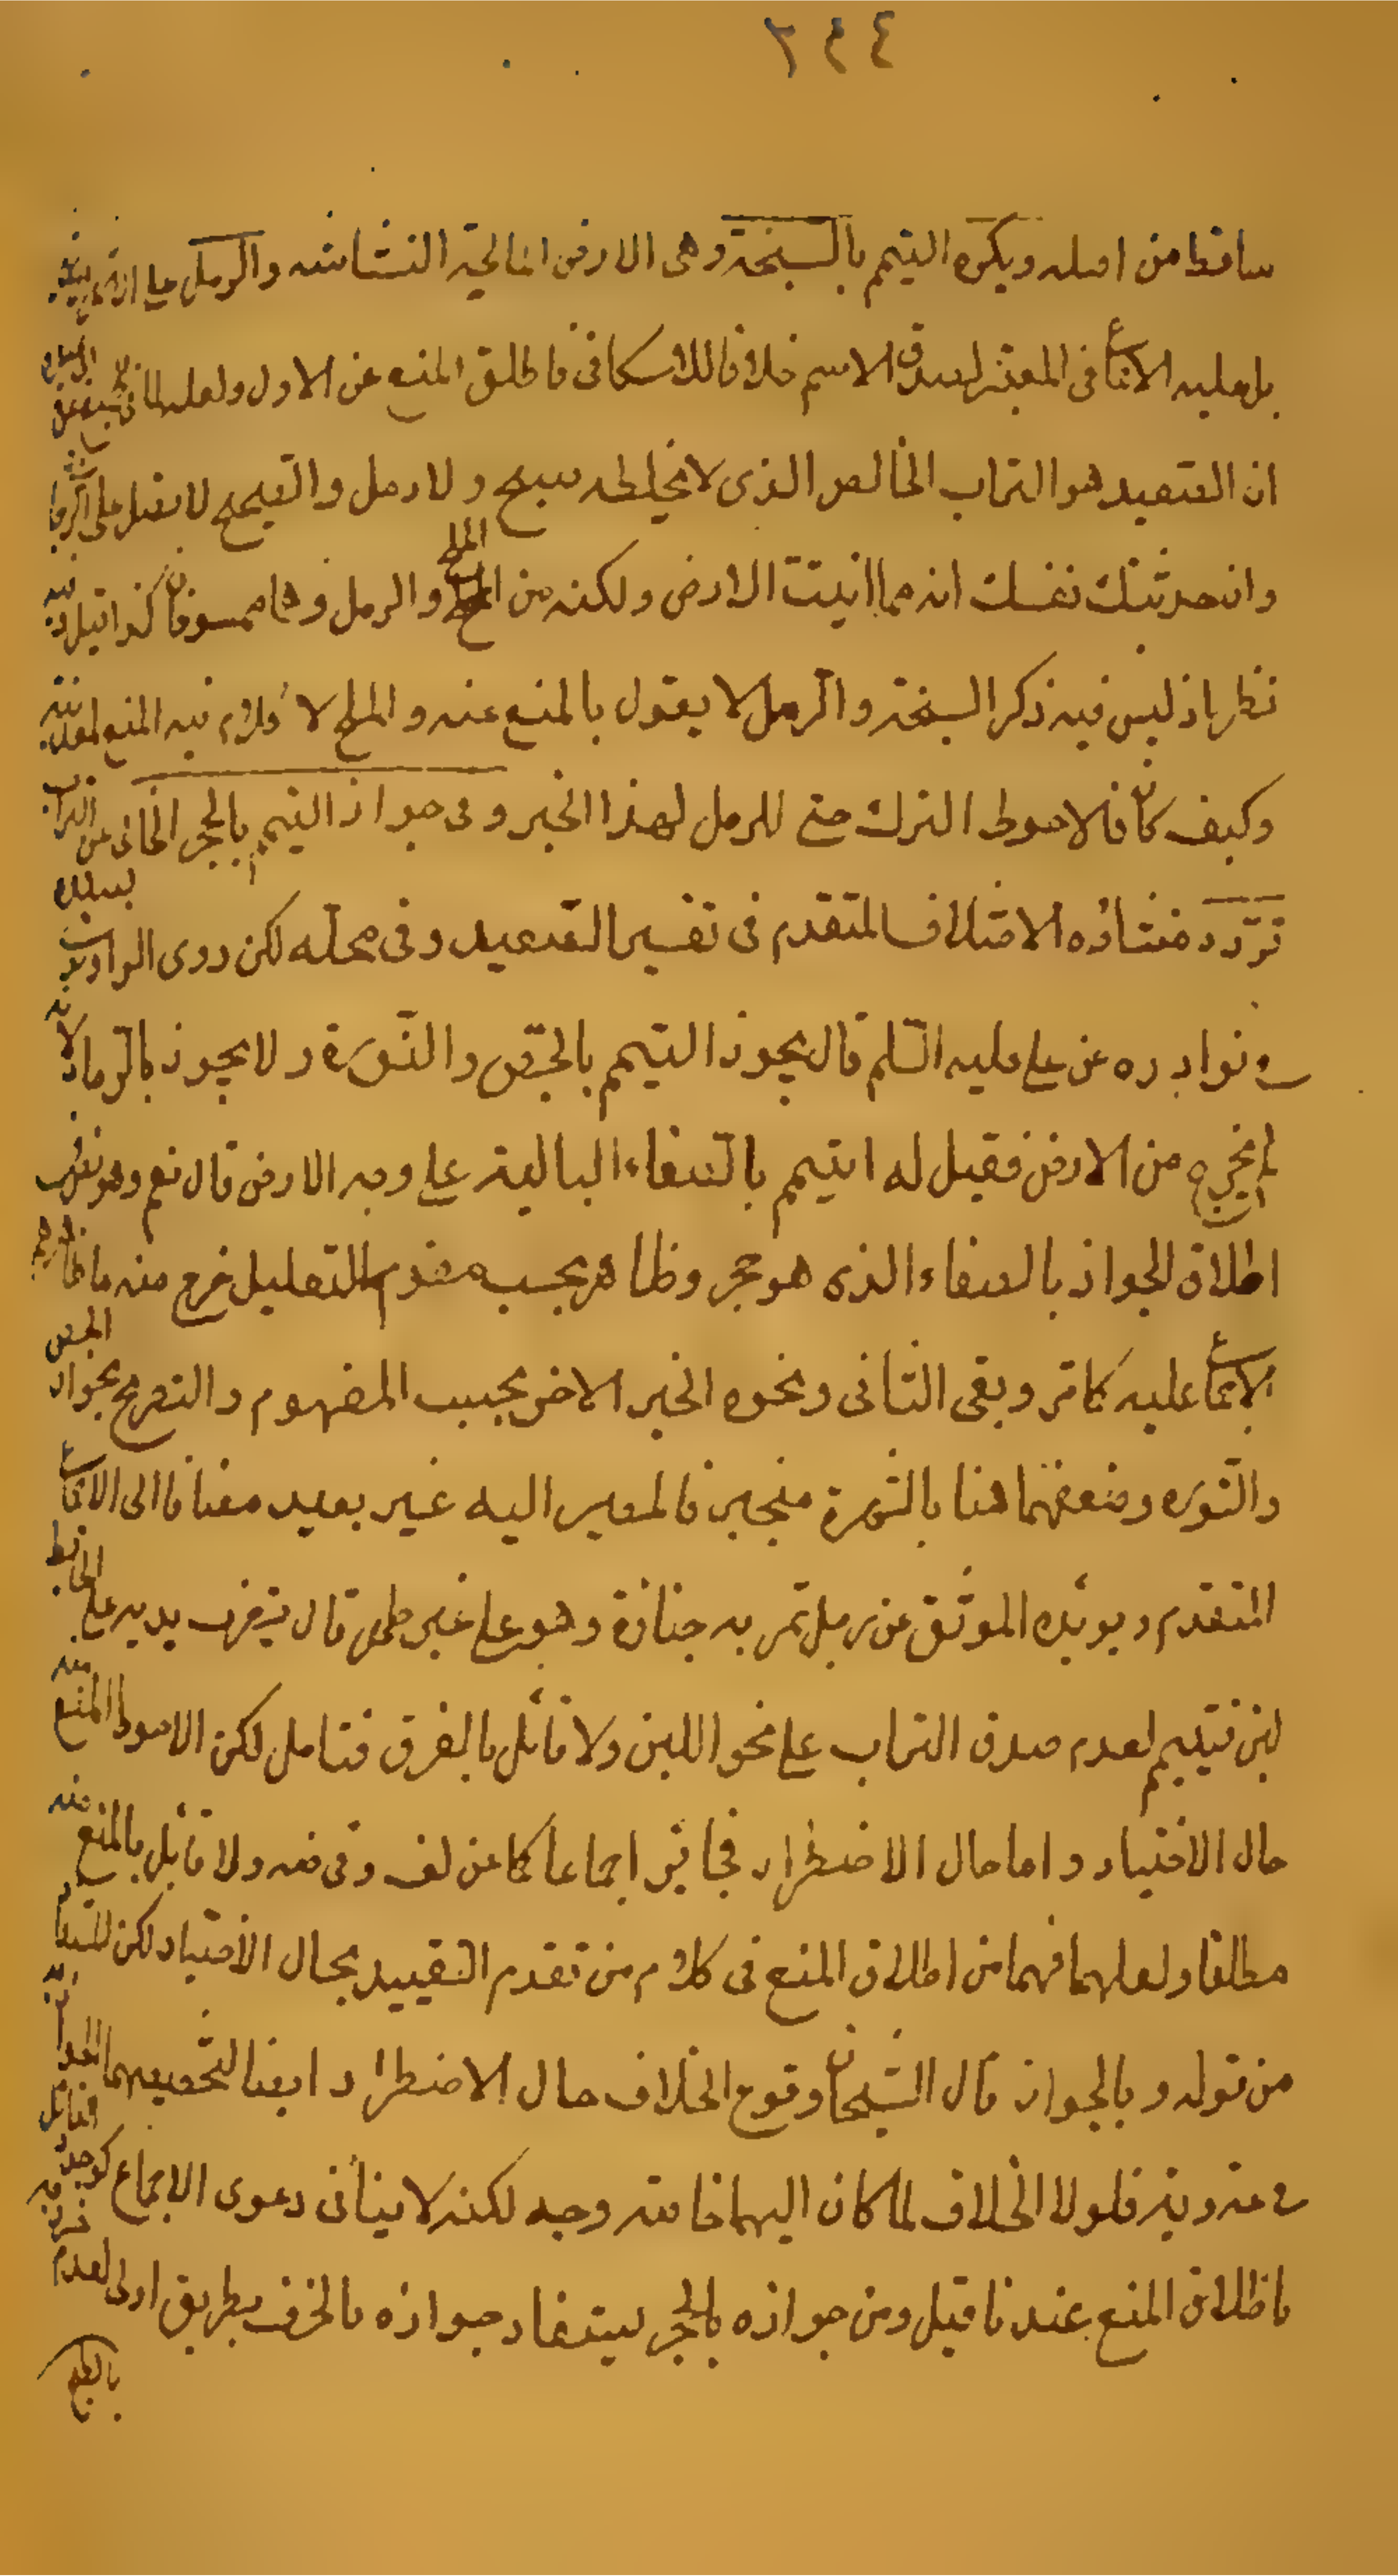 ٢٤٤
ساقطا من اصله ويكره التيمم بالسبخة وهى الارض المالحة النشاشة والرمل على
بل عليه الاجماع فى المعتبر لصدق الاسم خلافا للاسكافى فاطلق المنع عن الاول ولعله لما
ان الصعيد هو التراب الخالص الذى لا يخالطه سبخ ولا رمل والصحيح لا تصل على الزجاج
وان حدثتك نفسك انه مما انبتت الارض ولكنه من الملح والرمل وهما ممسوخان كذا قيل وفيه
نظر اذ ليس فيه ذكر السبخة والرمل لا يقول بالمنع عنه والملح لا كلام فيه المنع
وكيف كان فالاحوط الترك حتى للرمل لهذا الخبر وفى جواز التيمم بالحجر الخالى عن التراب
تردد منشاؤه الاختلاف المتقدم فى تفسير الصعيد وفى محله لكن روى الراوندى بسنده
فى نوادره عن على عليه السلم قال يجوز التيمم بالجص والنورة ولا يجوز بالرماد لانه
لم يخرج من الارض فقيل له ايتيمم بالصفا البالية على وجه الارض قال نعم وهو نص
اطلاق الجواز بالصفاء الذى هو حجر وظاهر بحسب مفهوم التعليل خرج منه ما
بالاجماع عليه كما مر وبقى الثانى ونحوه الخبر الاخر بحسب المفهوم والتصريح بجواز الجص
والنوره وضعفهما هنا بالشهرة منجبر فالمصير اليه غير بعيد مضافا الى الاجماع
المتقدم ويؤيده الموثق عن رجل تمر به جنازة وهو على غير طهر قال يضرب يديه على الحائط
لبن فيتيمم لعدم صدق التراب على نحو اللبن ولا قائل بالفرق فتامل لكن الاحوط المنع منه
حال الاختيار واما حال الاضطرار فجائز اجماعا كما عن لف وفى ضه ولا قائل بالمنع منه
مطلقا ولعلهما فهما من اطلاق المنع فى كلام من تقدم التقييد بحال الاختيار لكن
من قوله وبالجواز قال الشيخان وقوع الخلاف حال الاضطرار ايضا لتخصيصهما الجواز
فى عنه وية فلولا الخلاف لما كان اليهما خاصة وجه لكنه لا ينافى دعوى الاجماع
باطلاق المنع عندنا قيل ومن جوازه بالحجر يستفاد جوازه بالخزف بطريق اولى لعدم
بالطبخ